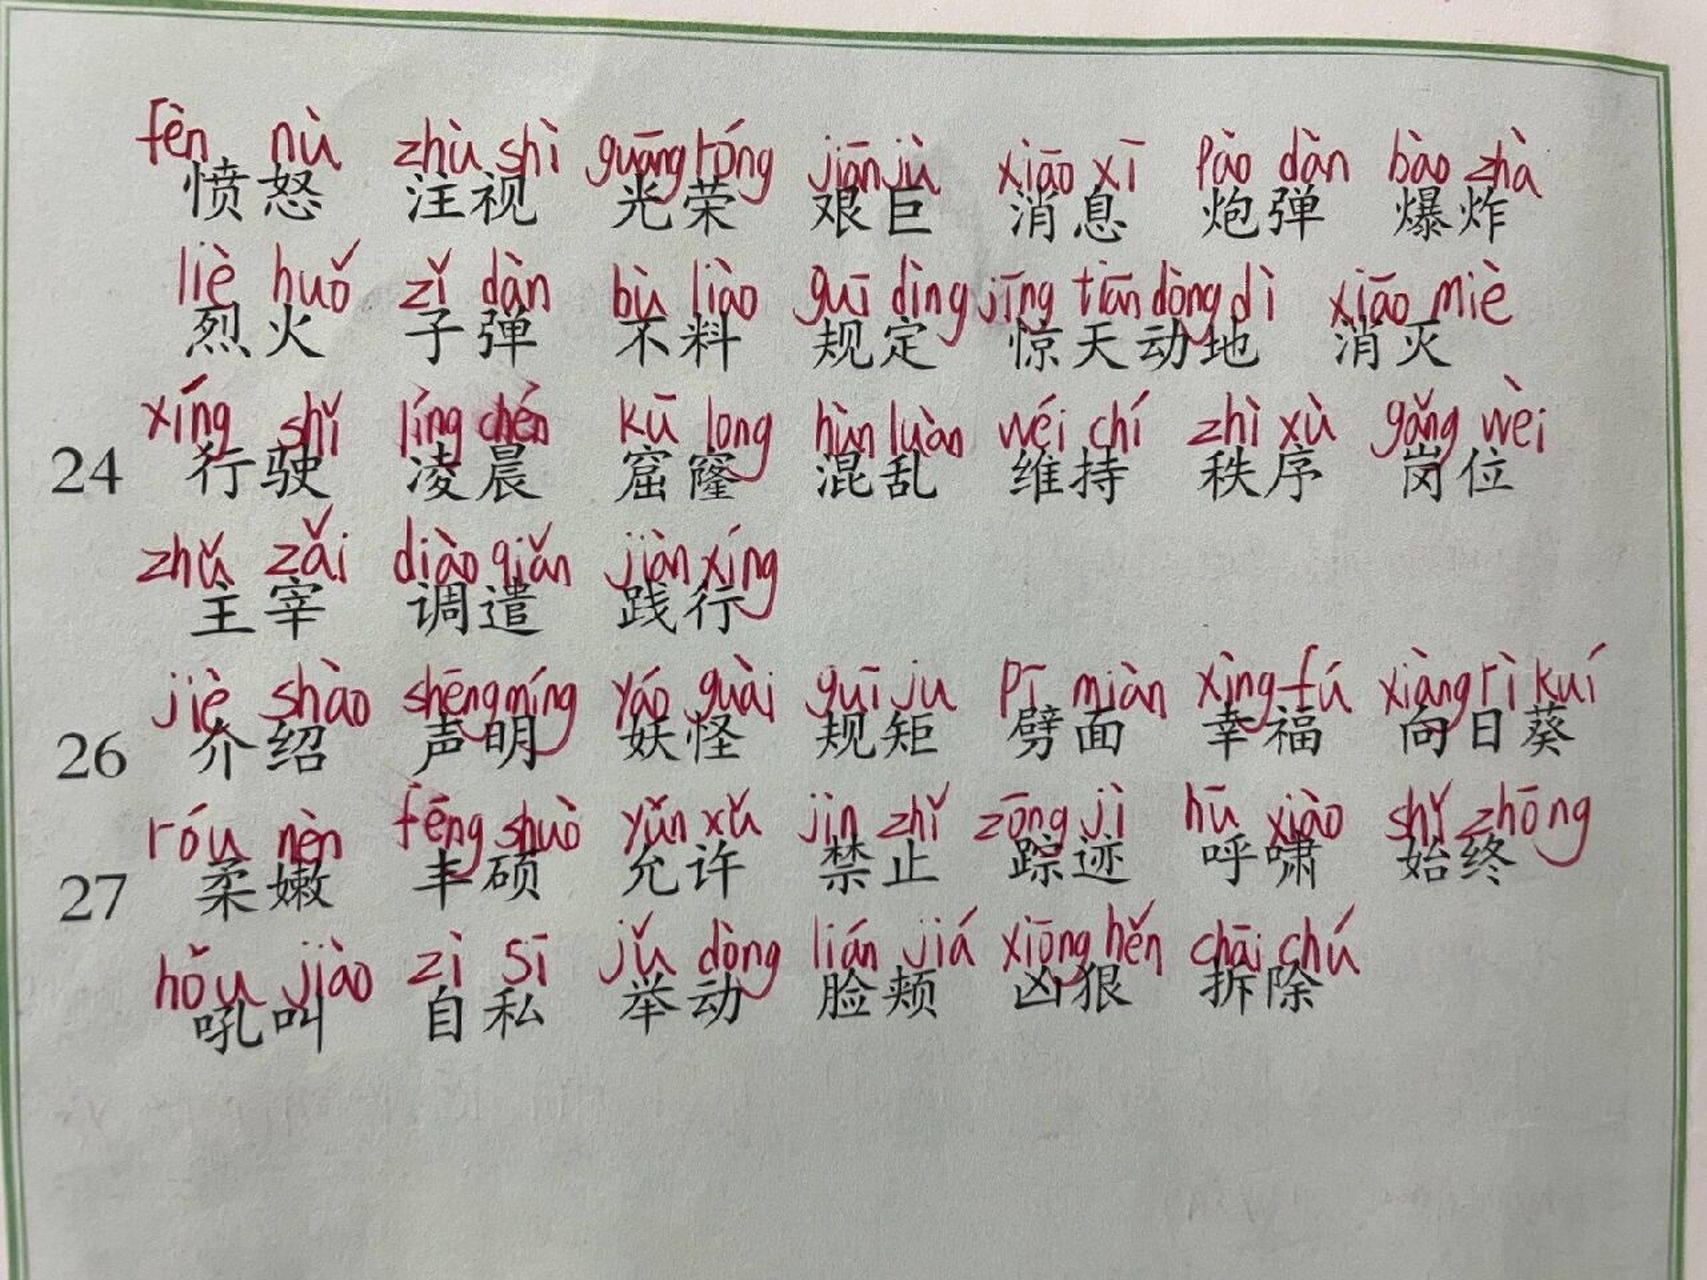 fèn nù zhù shì guāng róng jiān jù xiāo xī pào dàn bào zhà
愤怒 注视 光荣 艰巨 消息 炮弹 爆炸
liè huǒ zǐ dàn bù liào guī dìng jīng tiān dòng dì xiāo miè
烈火 子弹 不料 规定 惊天动地 消灭
xíng shǐ líng chén kū long hùn luàn wéi chí zhì xù gǎng wèi
24 行驶 凌晨 窟窿 混乱 维持 秩序 岗位
zhǔ zǎi diào qiǎn jiàn xíng
主宰 调遣 践行
jiè shào shēng míng yáo guài guī ju pī miàn xìng fú xiàng rì kuí
26 介绍 声明 妖怪 规矩 劈面 幸福 向日葵
róu nèn fēng shuò yǔn xǔ jìn zhǐ zōng jì hū xiào shǐ zhōng
27 柔嫩 丰硕 允许 禁止 踪迹 呼啸 始终
hǒu jiào zì sī jǔ dòng lián jiá xiōng hěn chāi chú
吼叫 自私 举动 脸颊 凶狠 拆除